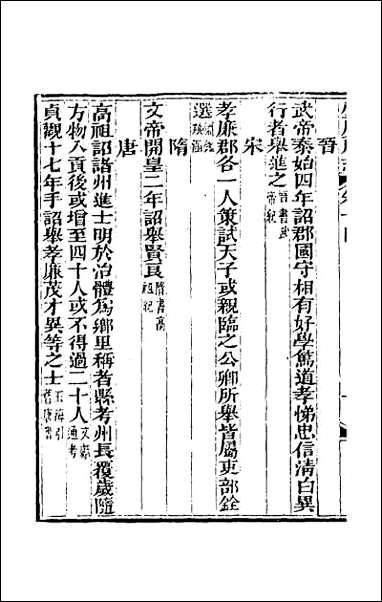 晉
武帝泰始四年詔郡國守相有好學篤道孝悌忠信清白異
行者舉進之晉書武帝紀
宋
孝廉郡各一人策試天子或親臨之公卿所舉皆屬吏部銓
選
隋
文帝開皇二年詔舉賢良隋書高祖紀
唐
高祖詔諸州進士明於治體爲鄉里稱者縣考州長覆歲隨
方物入貢後或增至四十人或不得過二十人文獻通考
貞觀十七年手詔舉孝廉茂才異等之士玉海引舊唐書